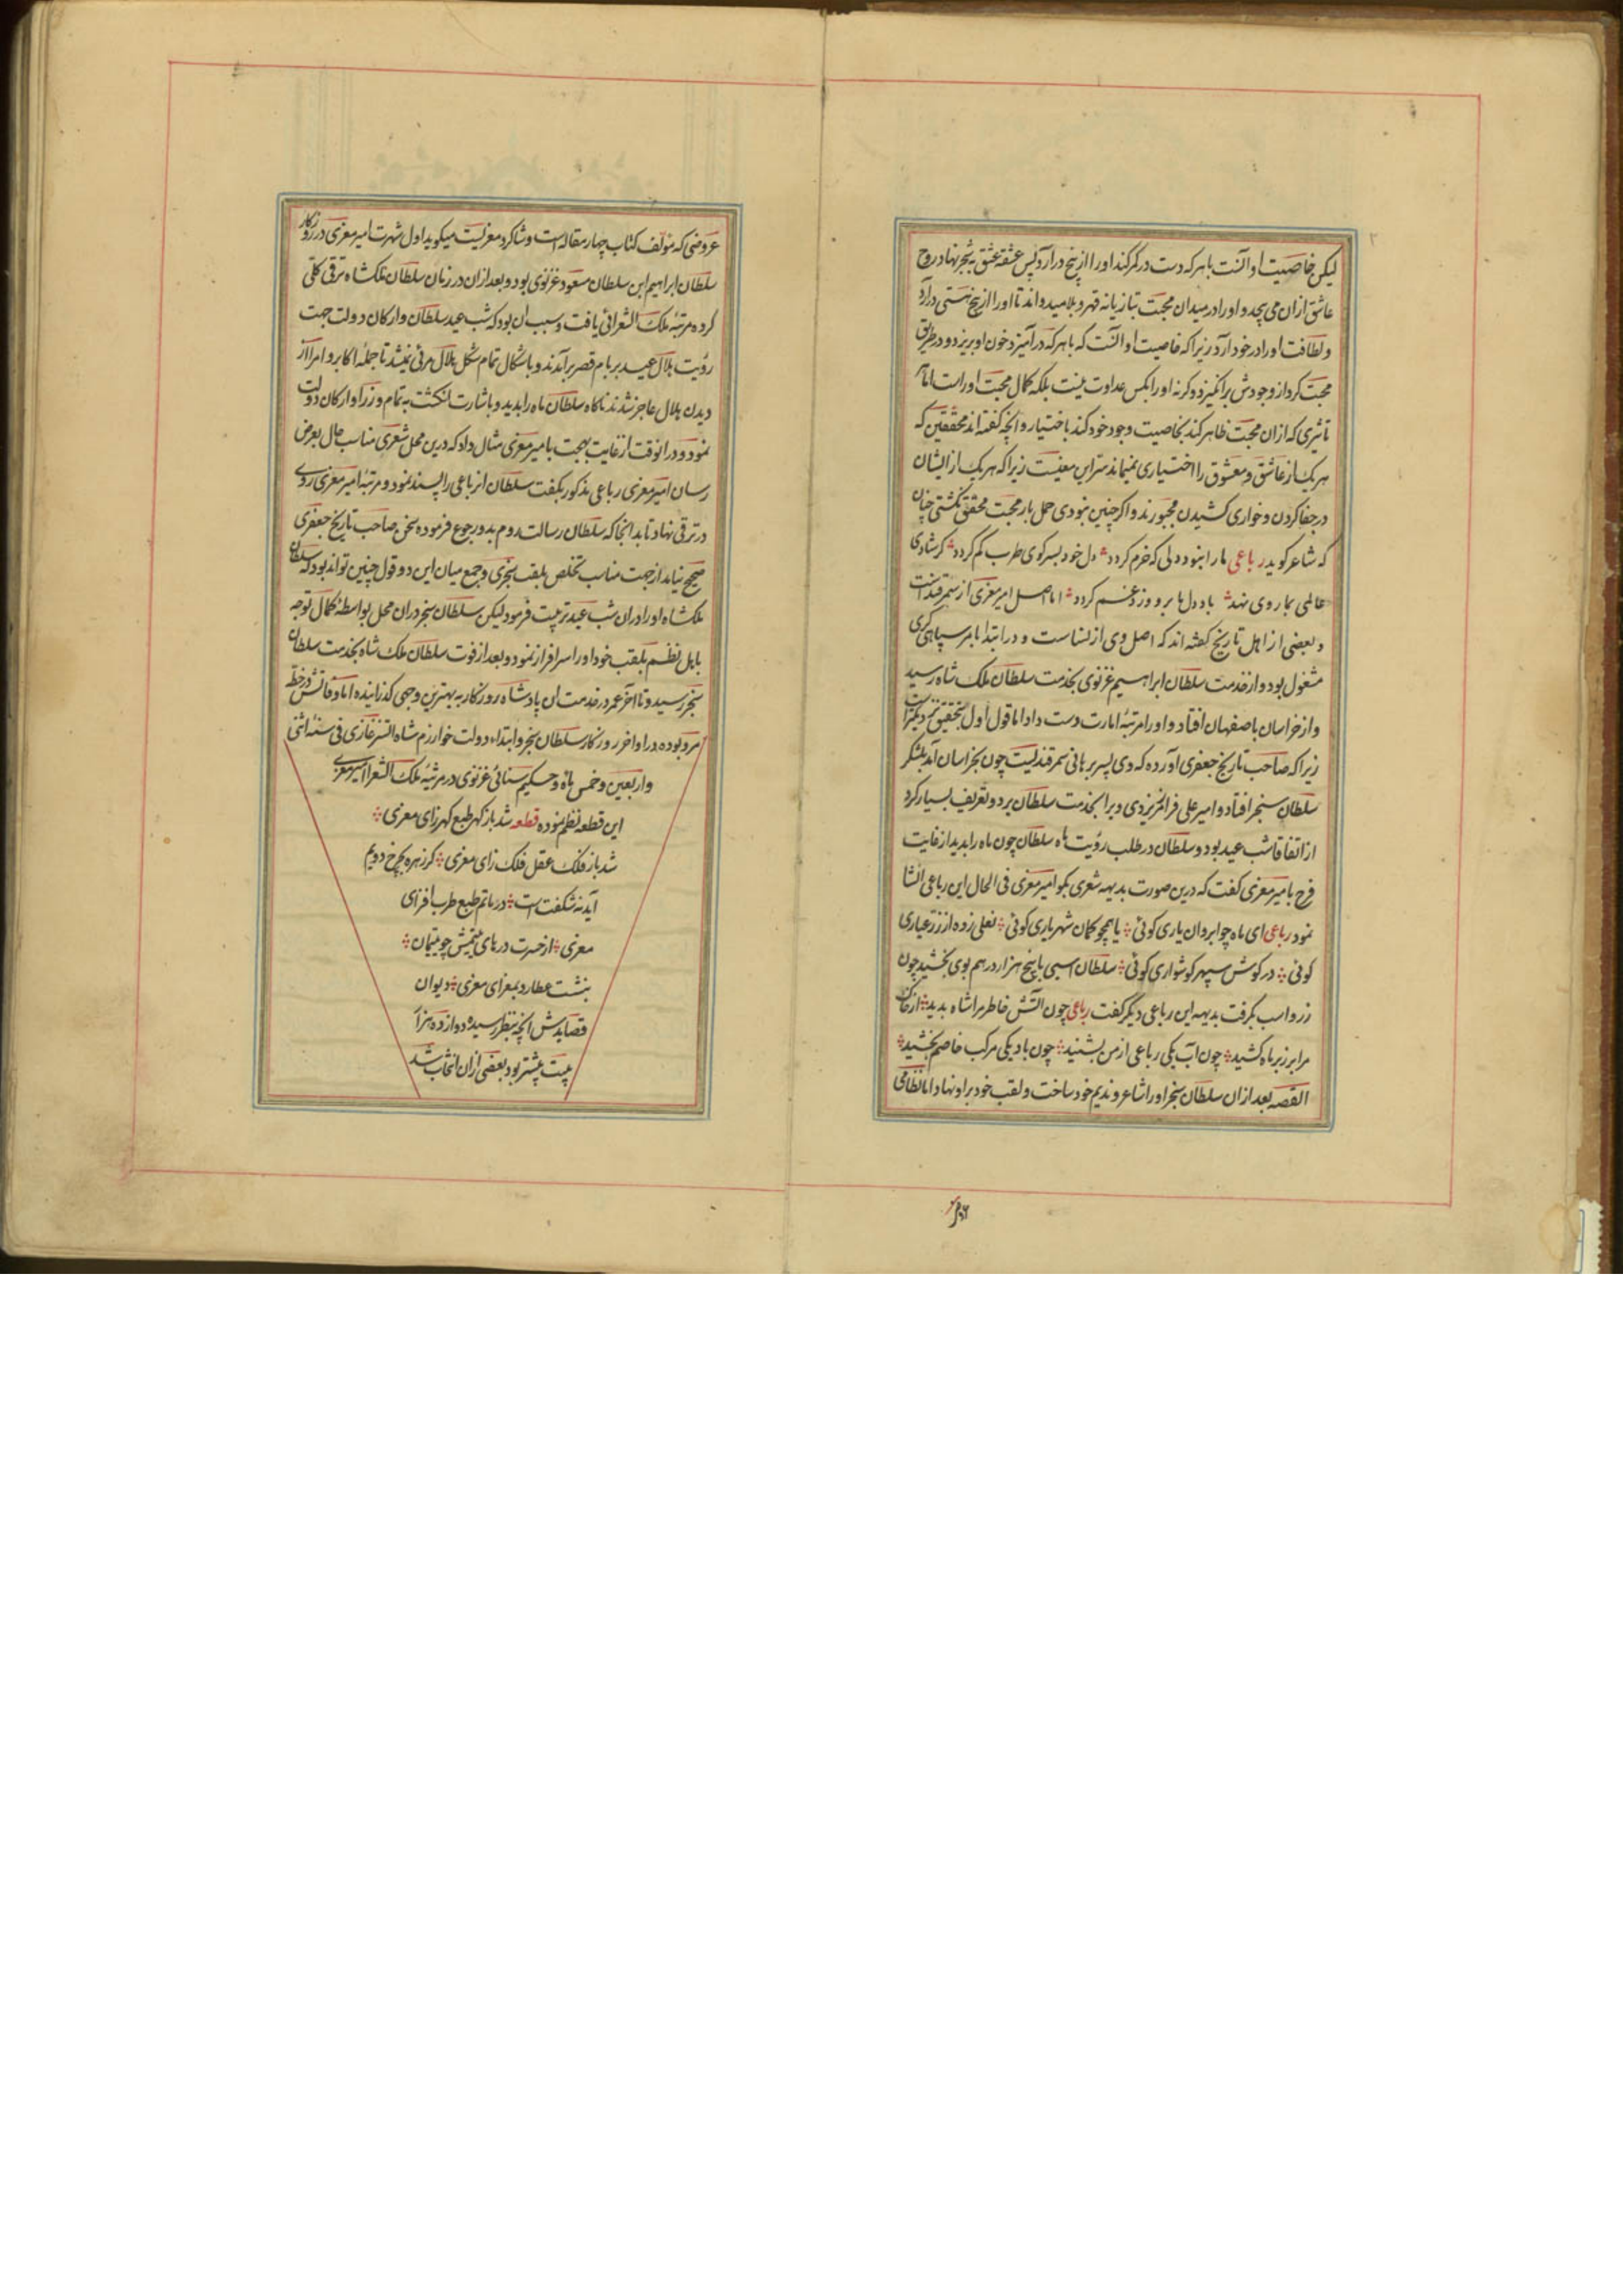 لیکن خاصیت او آنست با هر که دست در کمر کند او را از بیخ درآرد پس عشقه عشق بشجر نهاد روح
عاشق ازان می پیچد و او را در میدان محبت بتازیانه قهر و بلا میدواند تا او را از بیخ هستی درآرد
و لطافت او را در خود آرد زیرا که خاصیت او آنست که با هر که درآمیزد خون او بریزد و در طریق
محبت کرد از وجودش برانگیزد و کرنه او را بکس عداوت نیست بلکه کمال محبت او راست اما
تاثیری که ازان محبت ظاهر کند بخاصیت وجود خود کند باختیار و آنچه گفته اند محققین که
هر یک از عاشق و معشوق را اختیاری نمیماند سر این معنیست زیرا که هر یک از ایشان
در جفا کردن و خواری کشیدن مجبورند و اگر چنین نبودی حمل بار محبت محقق نگشتی چنان
که شاعر کوید رباعی ما را نبود دلی که خرم کردد دل خود بسر کوی طرب کم کردد کر شادی
عالمی بما روی نهد با دل ما برو وزد غم کردد اما اصل امیر معزی از سمرقند است
و بعضی از اهل تاریخ گفته اند که اصل وی از نساست و در ابتدا بامر سپاهی کری
مشغول بود و از خدمت سلطان ابراهیم غزنوی بخدمت سلطان ملک شاه رسید
و از خراسان باصفهان افتاد و او را مرتبهٔ امارت دست داد اما قول اول بتحقیق نزدیکتر است
زیرا که صاحب تاریخ جعفری آورده که وی پسر برهانی سمرقندیست چون بخراسان آمد بلشکر
سلطان سنجر افتاد و امیر علی فرامرز یزدی ویرا بخدمت سلطان برد و تعریف بسیار کرد
از اتفاقا شب عید بود و سلطان در طلب رؤیت ماه سلطان چون ماه را بدید از غایت
فرح با میر معزی گفت که درین صورت بدیهه شعری بکو امیر معزی فی الحال این رباعی انشا
نمود رباعی ای ماه چو ابروان یاری کوئی یا همچو کمان شهریاری کوئی نعلی زده از زر عیاری
کوئی در کوش سپهر کوشواری کوئی سلطان اسبی با پنج هزار درهم بوی بخشید چون
زر و اسب بکرفت بدیهه این رباعی دیگر گفت رباعی چون آتش خاطر مرا شاه بدید از خاک
مرا بر زبر ماه کشید چون آب یکی رباعی از من بشنید چون باد یکی مرکب خاصم بخشید
القصه بعد ازان سلطان سنجر او را شاعر و ندیم خود ساخت و لقب خود بر او نهاد اما نظامی
عروضی که مؤلف کتاب چهار مقاله است و شاکرد معزیست میکوید اول شهرت امیر معزی در روزکار
سلطان ابراهیم ابن سلطان مسعود غزنوی بود و بعد ازان در زمان سلطان ملکشاه ترقی کلی
کرده مرتبهٔ ملک الشعرائی یافت و سبب آن بود که شب عید سلطان و ارکان دولت جهت
رؤیت هلال عید بر بام قصر برآمدند و باشکال تمام شکل هلال مرئی نمیشد تا جمله اکابر و امرا از
دیدن هلال عاجز شدند ناکاه سلطان ماه را بدید و باشارت انکشت به تمام وزرا و ارکان دولت
نمود و در انوقت از غایت بهجت بامیر معزی مثال داد که درین محل شعری مناسب حال بعرض
رسان امیر معزی رباعی مذکور بگفت سلطان انرباعی را پسند نمود و مرتبهٔ امیر معزی روی
در ترقی نهاد تا بدانجا که سلطان رسالت روم بدو رجوع فرموده سخن صاحب تاریخ جعفری
صحیح نیاید از جهت مناسب تخلص بلقب سنجری و جمع میان این دو قول چنین تواند بود که سلطان
ملکشاه او را در ان شب عید تربیت فرمود لیکن سلطان سنجر در ان محل بواسطهٔ کمال توجه
باهل نظم بلقب خود او را سرافراز نمود و بعد از فوت سلطان ملک شاه بخدمت سلطان
سنجر رسید و تا آخر عمر در خدمت ان پادشاه روزکار به بهترین وجهی کذرانیده اما وفاتش در خطهٔ
مرو بوده در اواخر روزکار سلطان سنجر و ابتداء دولت خوارزم شاه اتسز غازی فی سنه اثنی
و اربعین و خمس مائه و حکیم سنائی غزنوی در مرثیهٔ ملک الشعرا امیر معزی
این قطعه نظم نموده قطعه شد باز کهر طبع کهرزای معزی
شد باز فلک عقل فلک زای معزی کر زهره بچرخ دویم
آید نه شکفت است در ماتم طبع طرب افزای
معزی از حسرت درهای یتیمش چو یتیمان
بنشست عطارد بمعزای معزی دیوان
قصایدش آنچه بنظر رسیده دوازده هزار
بیت بیشتر بود بعضی ازان انتخاب شد